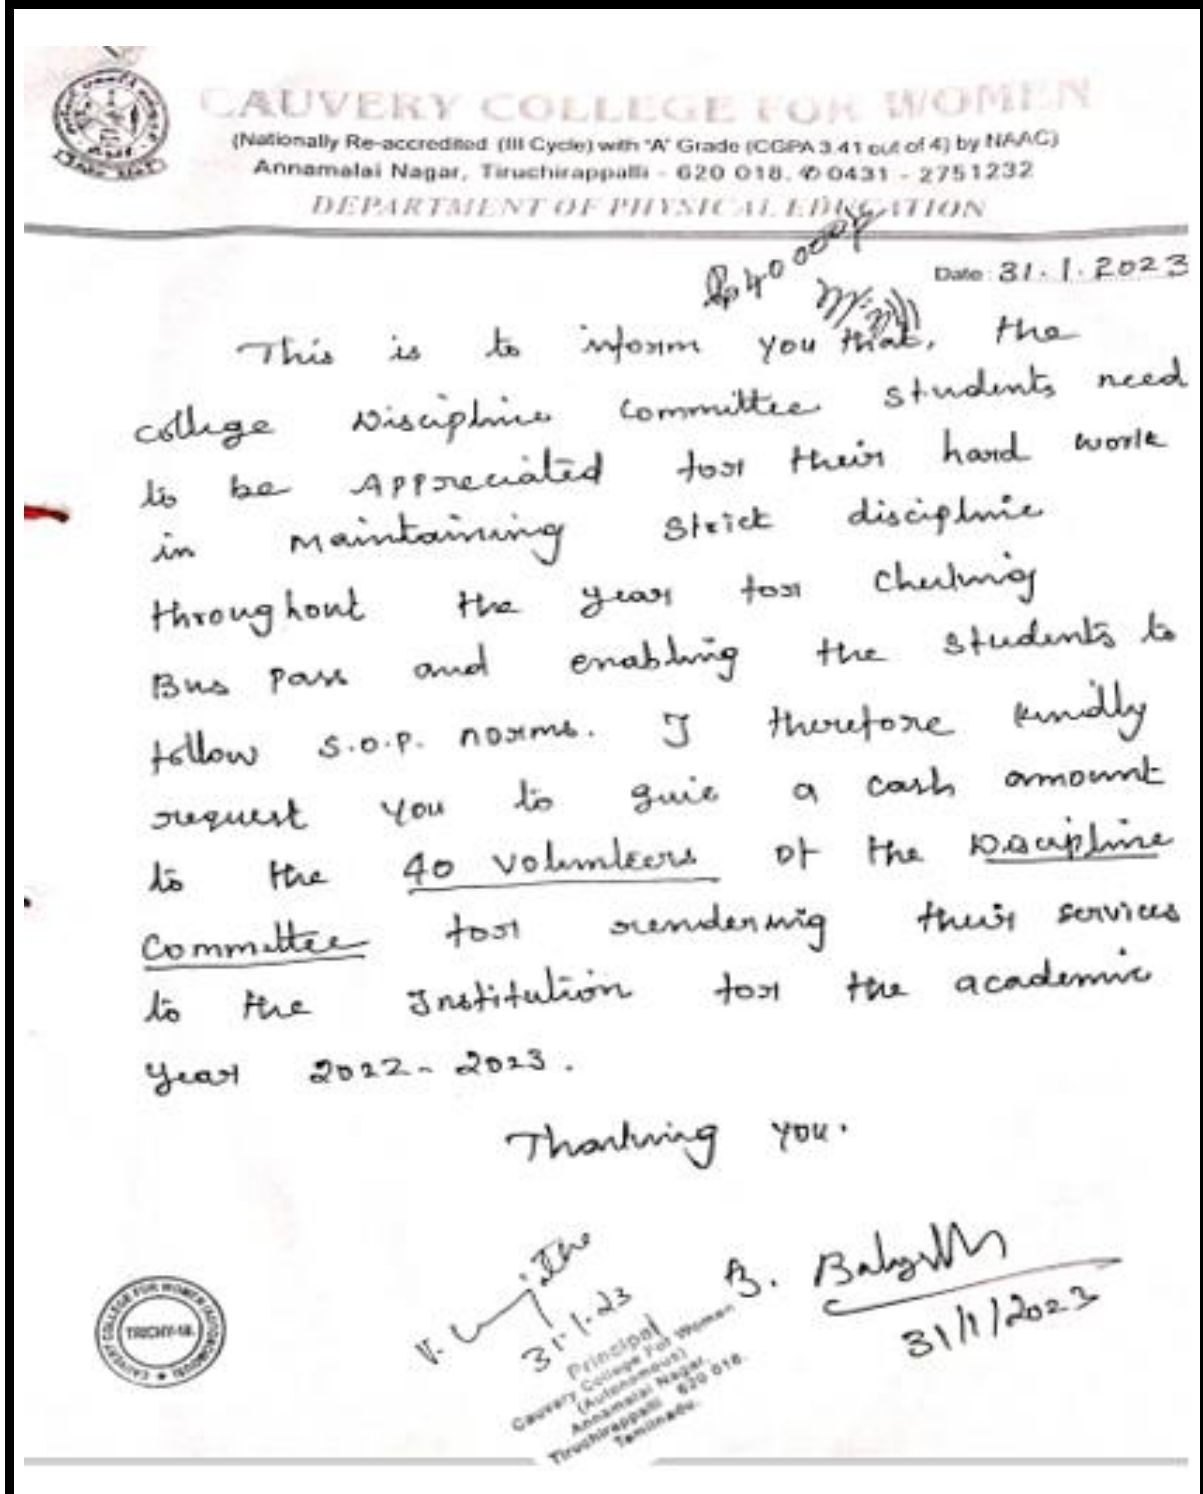 CAUVERY COLLEGE FOR WOMEN
(Nationally Re-accredited (III Cycle) with 'A' Grade (CGPA 3.41 out of 4) by NAAC)
Annamalai Nagar, Tiruchirappalli - 620 018. ✆ 0431 - 2751232
DEPARTMENT OF PHYSICAL EDUCATION
Date : 31.1.2023
This is to inform you that, the
college Discipline Committee students need
to be Appreciated for their hard work
in Maintaining Strict discipline
throughout the year for Checking
Bus Pass and enabling the students to
follow S.O.P. norms. I therefore kindly
request you to give a cash amount
to the 40 Volunteers of the Discipline
Committee for rendering their services
to the Institution for the academic
year 2022-2023.
Thanking you.
V.
31.1.23
B.
31/1/2023
Principal
Cauvery College For Women
(Autonomous)
Annamalai Nagar,
Tiruchirappalli 620 018.
Tamilnadu.
CAUVERY COLLEGE FOR WOMEN (AUTONOMOUS)
TRICHY-18.